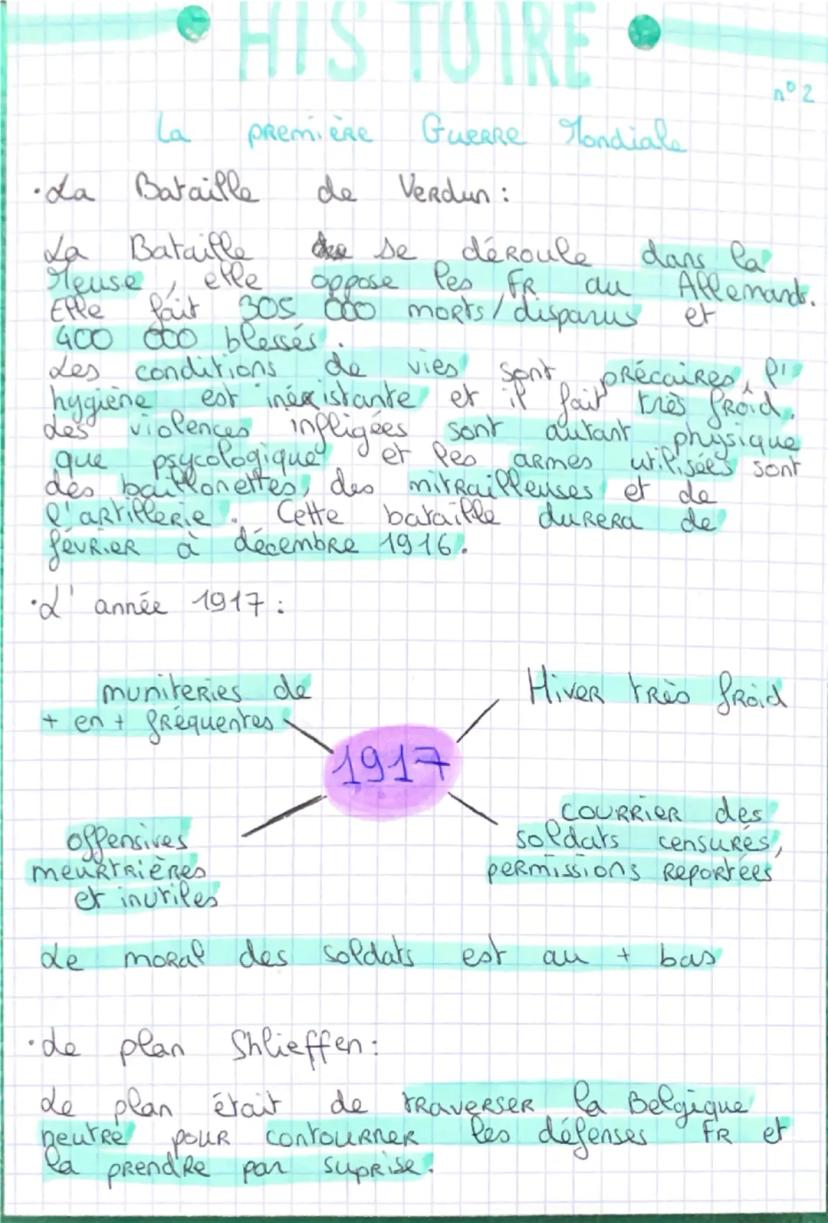 HISTOIRE
n°2
La première Guerre Mondiale
·La Bataille de Verdun :
La Bataille se déroule dans la
Meuse, elle oppose les FR au Allemands.
Elle fait 305 000 morts/disparus et
400 000 blessés.
Les conditions de vies sont précaires, l'
hygiène est inéxistante et il fait très froid.
Les violences infligées sont autant physique
que psycologique et les armes utilisées sont
des baillonettes, des mitrailleuses et de
l'artillerie. Cette bataille durera de
février à décembre 1916.
·L'année 1917 :
muniteries de
+ en + fréquentes
Hiver très froid
1917
offensives
meurtrières
et inutiles
courrier des
soldats censurés,
permissions reportées
Le moral des soldats est au + bas
·Le plan Shlieffen :
Le plan était de traverser la Belgique
neutre pour contourner les défenses FR et
la prendre par suprise.